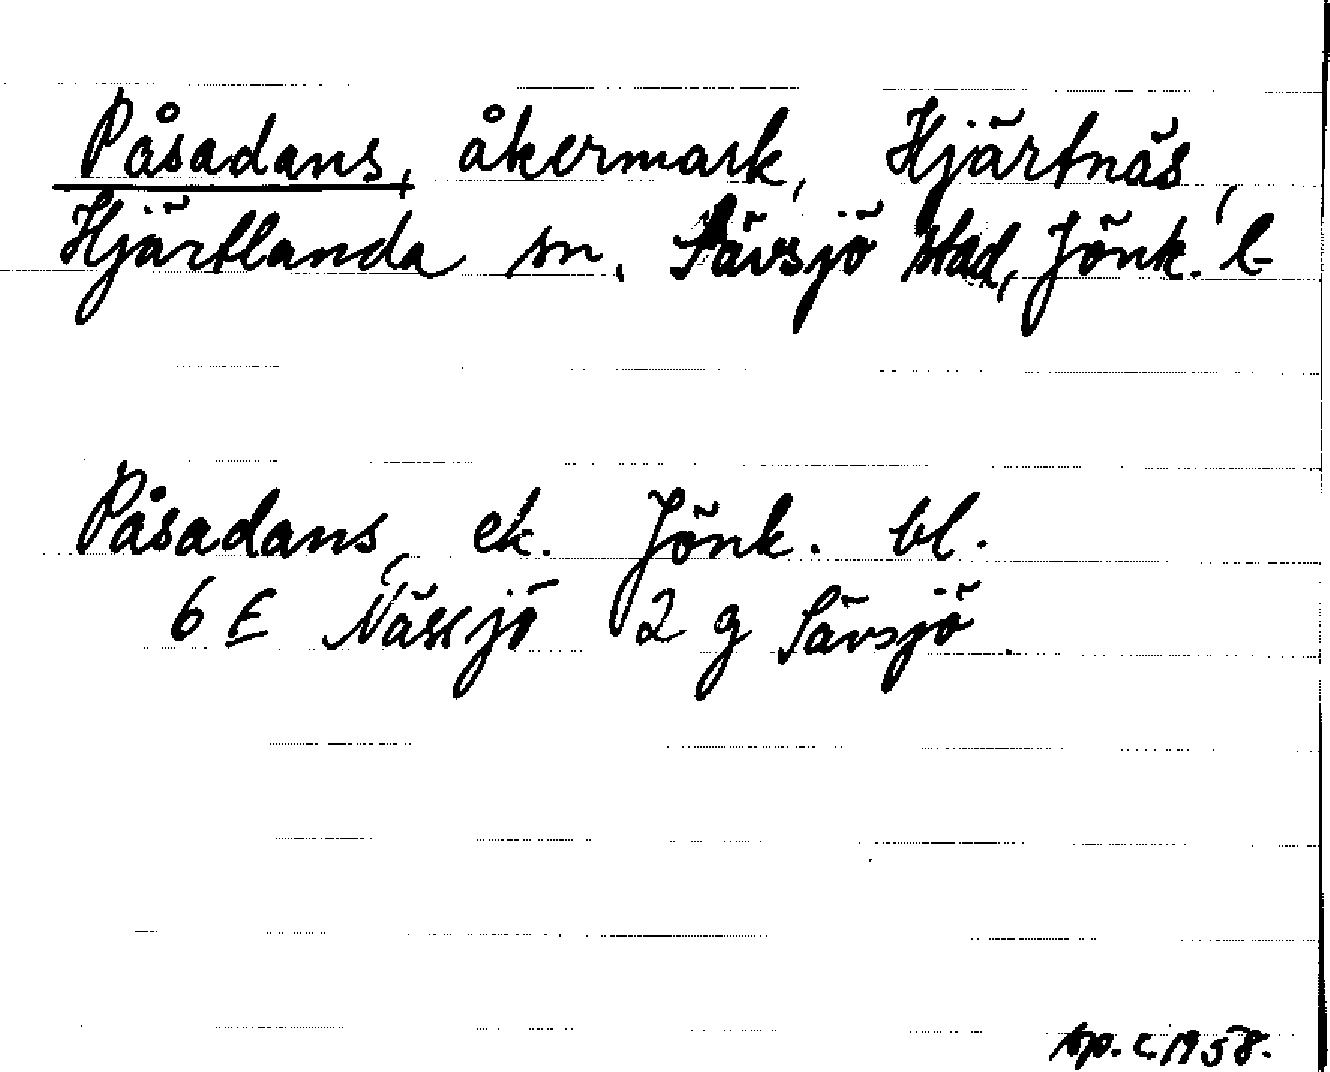 Påsadans, åkermark, Hjärtnäs,
Hjärtlanda sn. Sävsjö stad, Jönk. l
Påsadans, ek. Jönk. bl.
6 E Nässjö 2 g Sävsjö.
1958.